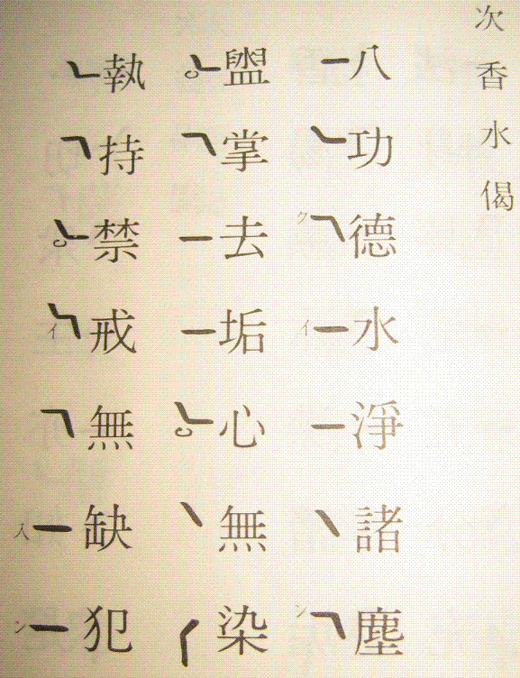 次香水偈
八功德水淨諸塵
盥掌去垢心無染
執持禁戒無缺犯